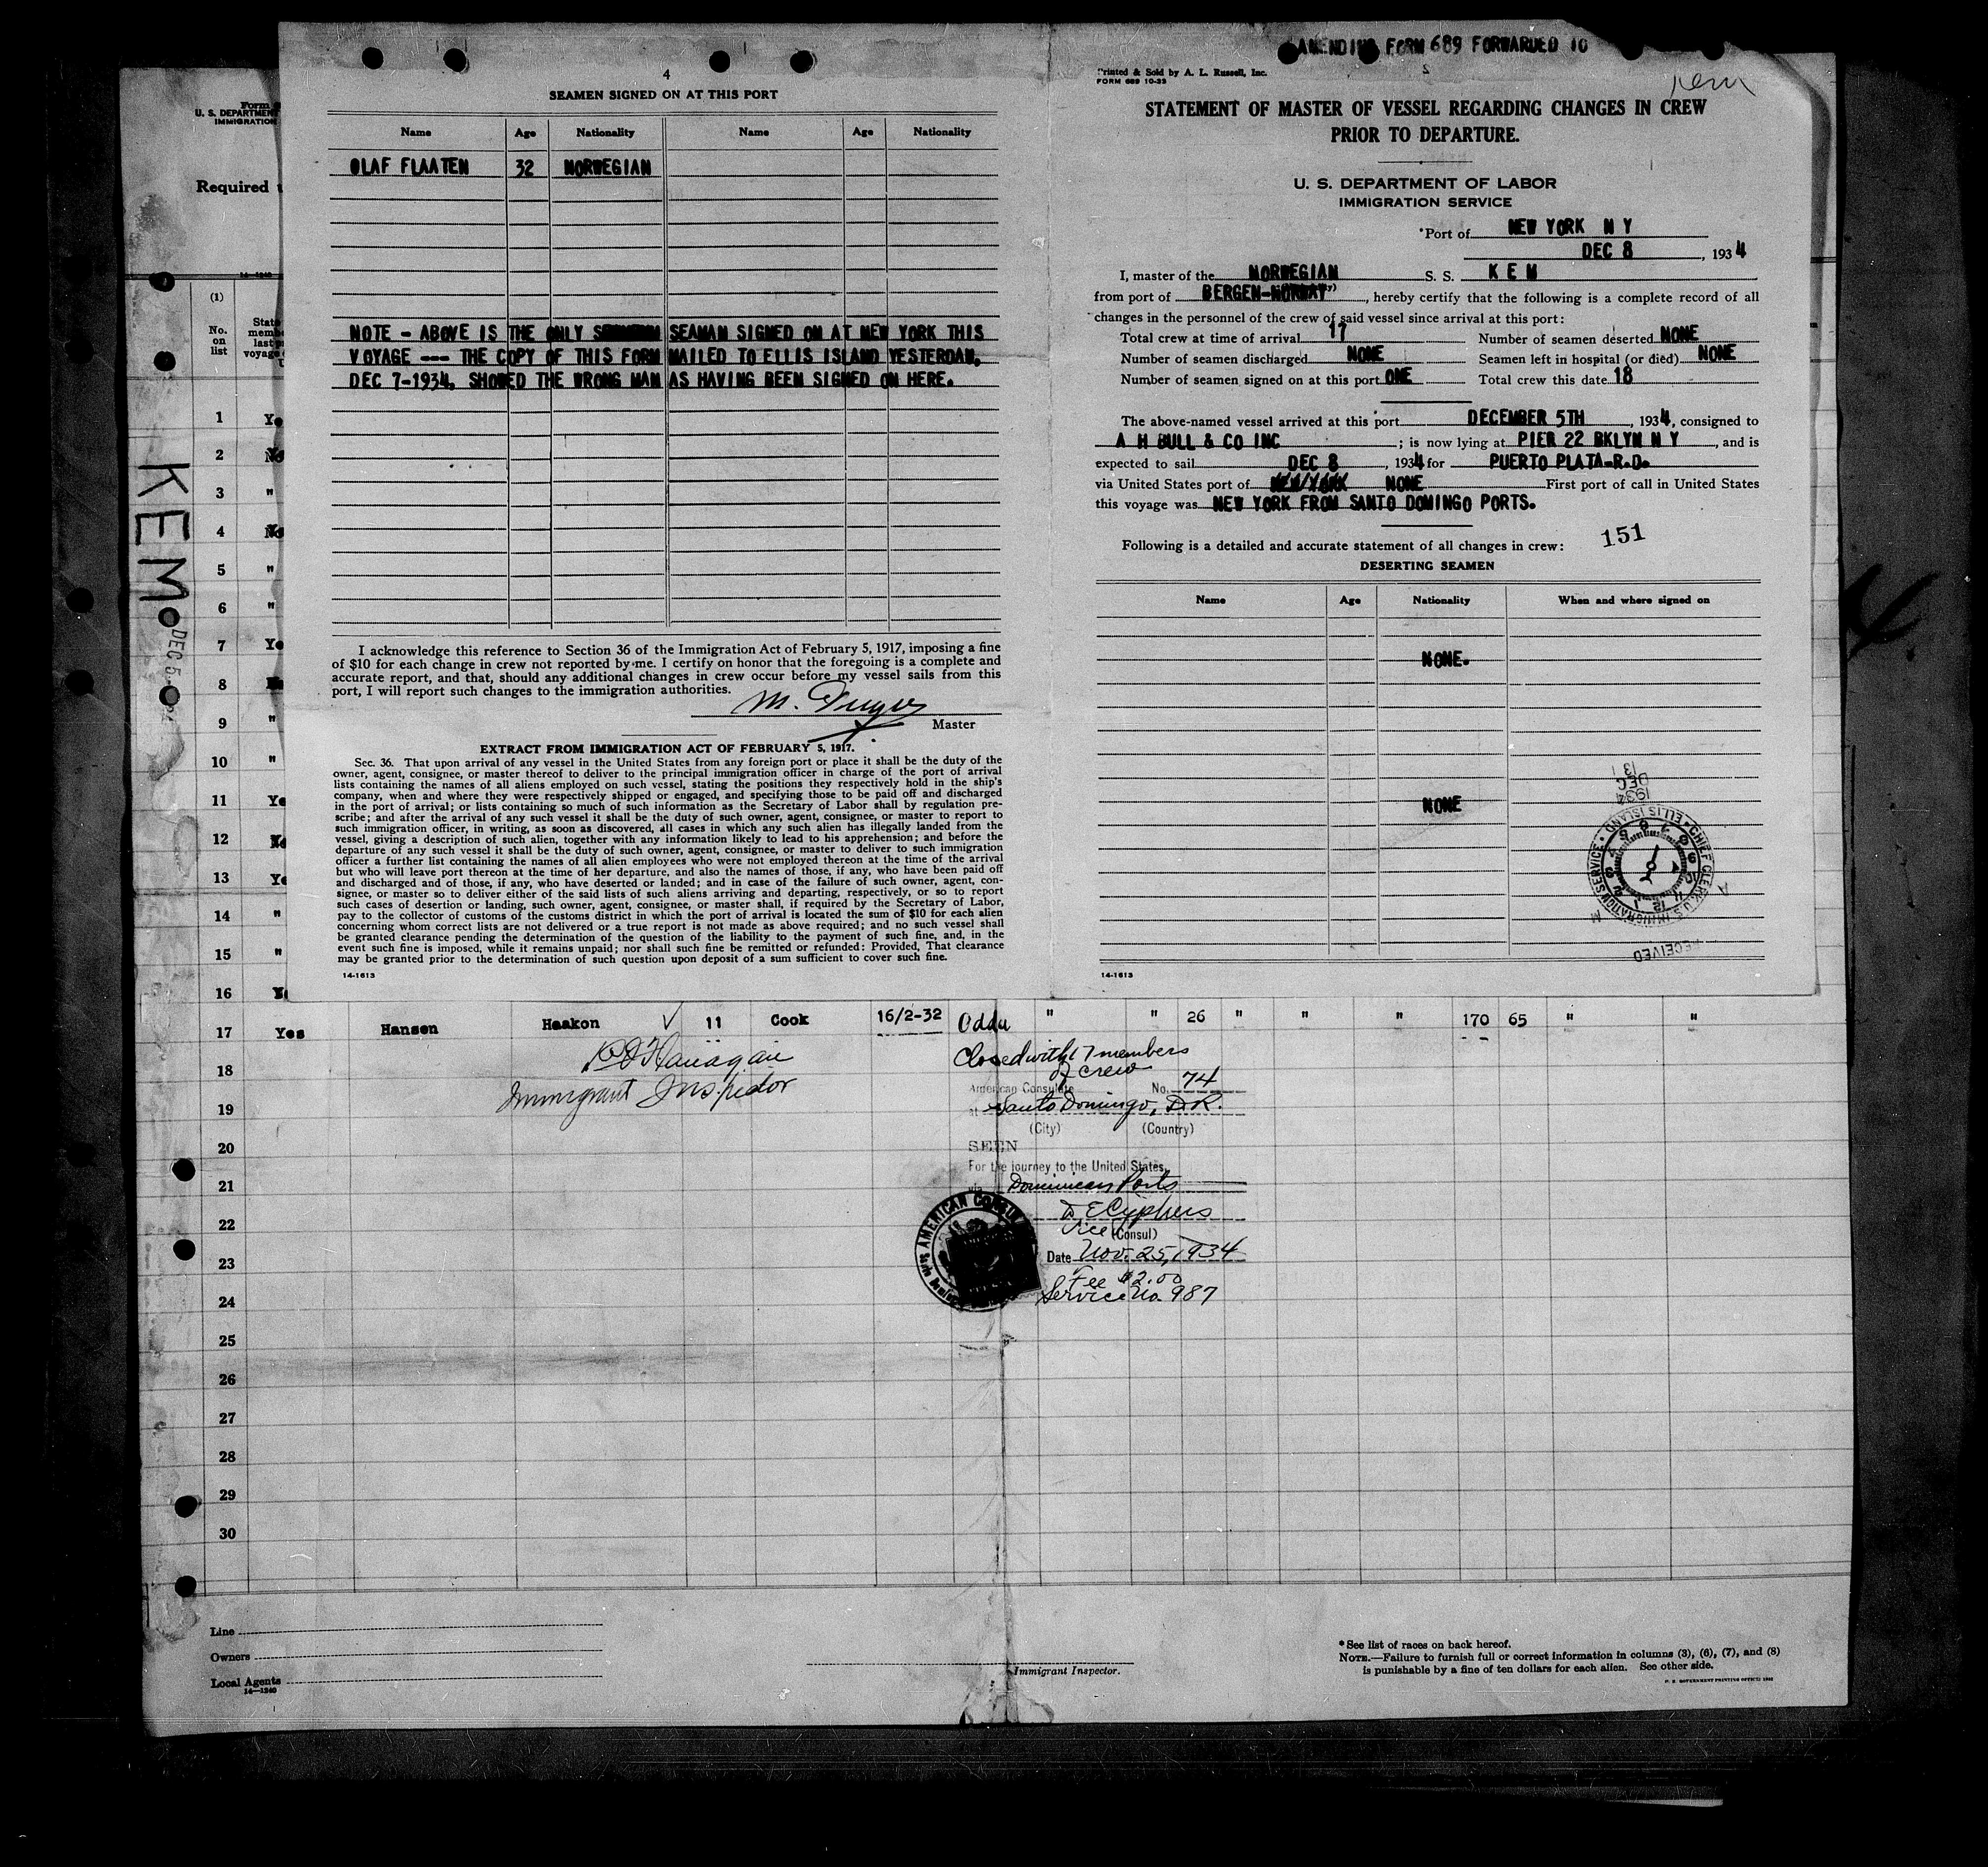 4
SEAMEN SIGNED ON AT THIS PORT
Name Age Nationality Name Age Nationality
OLAF FLAATEN 32 NORWEGIAN
NOTE - ABOVE IS THE ONLY SEAMAN SIGNED ON AT NEW YORK THIS
VOYAGE --- THE COPY OF THIS FORM MAILED TO ELLIS ISLAND YESTERDAY,
DEC 7-1934, SHOWED THE WRONG MAN AS HAVING BEEN SIGNED ON HERE.
I acknowledge this reference to Section 36 of the Immigration Act of February 5, 1917, imposing a fine
of $10 for each change in crew not reported by me. I certify on honor that the foregoing is a complete and
accurate report, and that, should any additional changes in crew occur before my vessel sails from this
port, I will report such changes to the immigration authorities.
M.
Master
EXTRACT FROM IMMIGRATION ACT OF FEBRUARY 5, 1917.
Sec. 36. That upon arrival of any vessel in the United States from any foreign port or place it shall be the duty of the
owner, agent, consignee, or master thereof to deliver to the principal immigration officer in charge of the port of arrival
lists containing the names of all aliens employed on such vessel, stating the positions they respectively hold in the ship's
company, when and where they were respectively shipped or engaged, and specifying those to be paid off and discharged
in the port of arrival; or lists containing so much of such information as the Secretary of Labor shall by regulation pre-
scribe; and after the arrival of any such vessel it shall be the duty of such owner, agent, consignee, or master to report to
such immigration officer, in writing, as soon as discovered, all cases in which any such alien has illegally landed from the
vessel, giving a description of such alien, together with any information likely to lead to his apprehension; and before the
departure of any such vessel it shall be the duty of such owner, agent, consignee, or master to deliver to such immigration
officer a further list containing the names of all alien employees who were not employed thereon at the time of the arrival
but who will leave port thereon at the time of her departure, and also the names of those, if any, who have been paid off
and discharged and of those, if any, who have deserted or landed; and in case of the failure of such owner, agent, con-
signee, or master so to deliver either of the said lists of such aliens arriving and departing, respectively, or so to report
such cases of desertion or landing, such owner, agent, consignee, or master shall, if required by the Secretary of Labor,
pay to the collector of customs of the customs district in which the port of arrival is located the sum of $10 for each alien
concerning whom correct lists are not delivered or a true report is not made as above required; and no such vessel shall
be granted clearance pending the determination of the question of the liability to the payment of such fine, and, in the
event such fine is imposed, while it remains unpaid; nor shall such fine be remitted or refunded: Provided, That clearance
may be granted prior to the determination of such question upon deposit of a sum sufficient to cover such fine.
14-1613
AMENDING FORM 689 FORWARDED TO
Printed & Sold by A. L. Russell, Inc.
FORM 689 10-33
Kem
STATEMENT OF MASTER OF VESSEL REGARDING CHANGES IN CREW
PRIOR TO DEPARTURE.
U. S. DEPARTMENT OF LABOR
IMMIGRATION SERVICE
*Port of NEW YORK N Y
DEC 8, 1934
I, master of the NORWEGIAN S. S. KEM
from port of BERGEN-NORWAY, hereby certify that the following is a complete record of all
changes in the personnel of the crew of said vessel since arrival at this port:
Total crew at time of arrival 17 Number of seamen deserted NONE
Number of seamen discharged NONE Seamen left in hospital (or died) NONE
Number of seamen signed on at this port ONE Total crew this date 18
The above-named vessel arrived at this port DECEMBER 5TH, 1934, consigned to
A H BULL & CO INC; is now lying at PIER 22 BKLYN N Y, and is
expected to sail DEC 8, 1934 for PUERTO PLATA-R.D.
via United States port of NEW YORK NONE First port of call in United States
this voyage was NEW YORK FROM SANTO DOMINGO PORTS.
151
Following is a detailed and accurate statement of all changes in crew:
DESERTING SEAMEN
Name Age Nationality When and where signed on
NONE.
NONE
1934
DEC
13
CHIEF CLERK U.S. IMMIGRATION SERVICE • ELLIS ISLAND •
RECEIVED
14-1613
Form
U. S. DEPARTMENT
IMMIGRATION
Required
14-1240
(1)
No. on list
State
last
voyage
KEM
DEC 5
1 Ye
2
3 "
4
5 "
6 "
7 Ye
8
9 "
10 "
11 Ye
12
13 Ye
14 "
15 "
16
17 Yes Hansen Haakon 11 Cook 16/2-32 Odda " " 26 " " " 170 65 " "
18
19
20
21
22
23
24
25
26
27
28
29
30
Flanagan
Immigrant Inspector
Closed with 17 members
of crew
American Consulate No. 74
at Santo Domingo, D.R.
(City) (Country)
SEEN
For the journey to the United States
via Dominican Ports
Cyphers
Vice (Consul)
Date Nov. 25, 1934
Fee $2.00
Service No. 987
AMERICAN CONSUL
Line
Owners
Local Agents
14-1240
Immigrant Inspector.
* See list of races on back hereof.
NOTE.—Failure to furnish full or correct information in columns (3), (6), (7), and (8)
is punishable by a fine of ten dollars for each alien. See other side.
U. S. GOVERNMENT PRINTING OFFICE: 1932